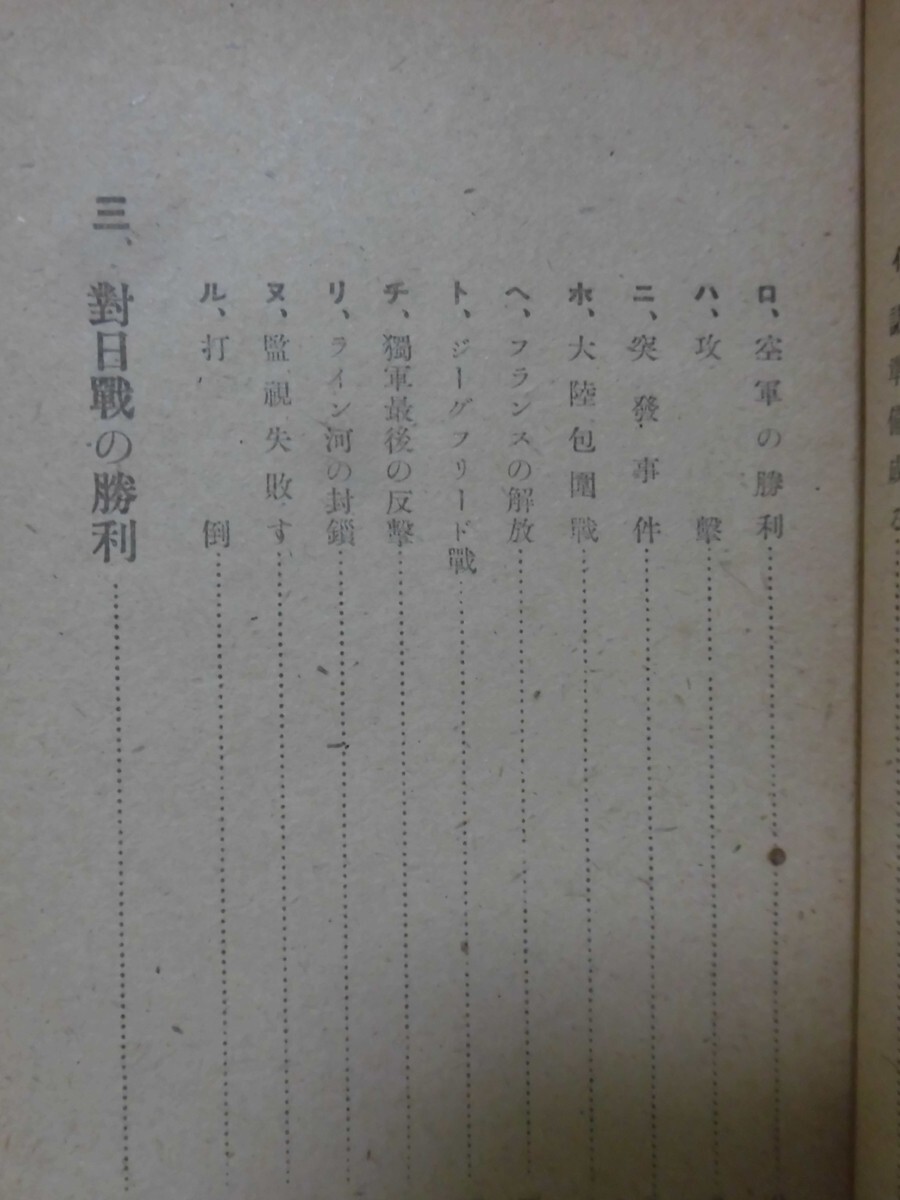 ロ、空軍の勝利
ハ、攻擊
ニ、突發事件
ホ、大陸包圍戰
ヘ、フランスの解放
ト、ジーグフリード戰
チ、獨軍最後の反擊
リ、ライン河の封鎖
ヌ、監視失敗す
ル、打倒
三、對日戰の勝利